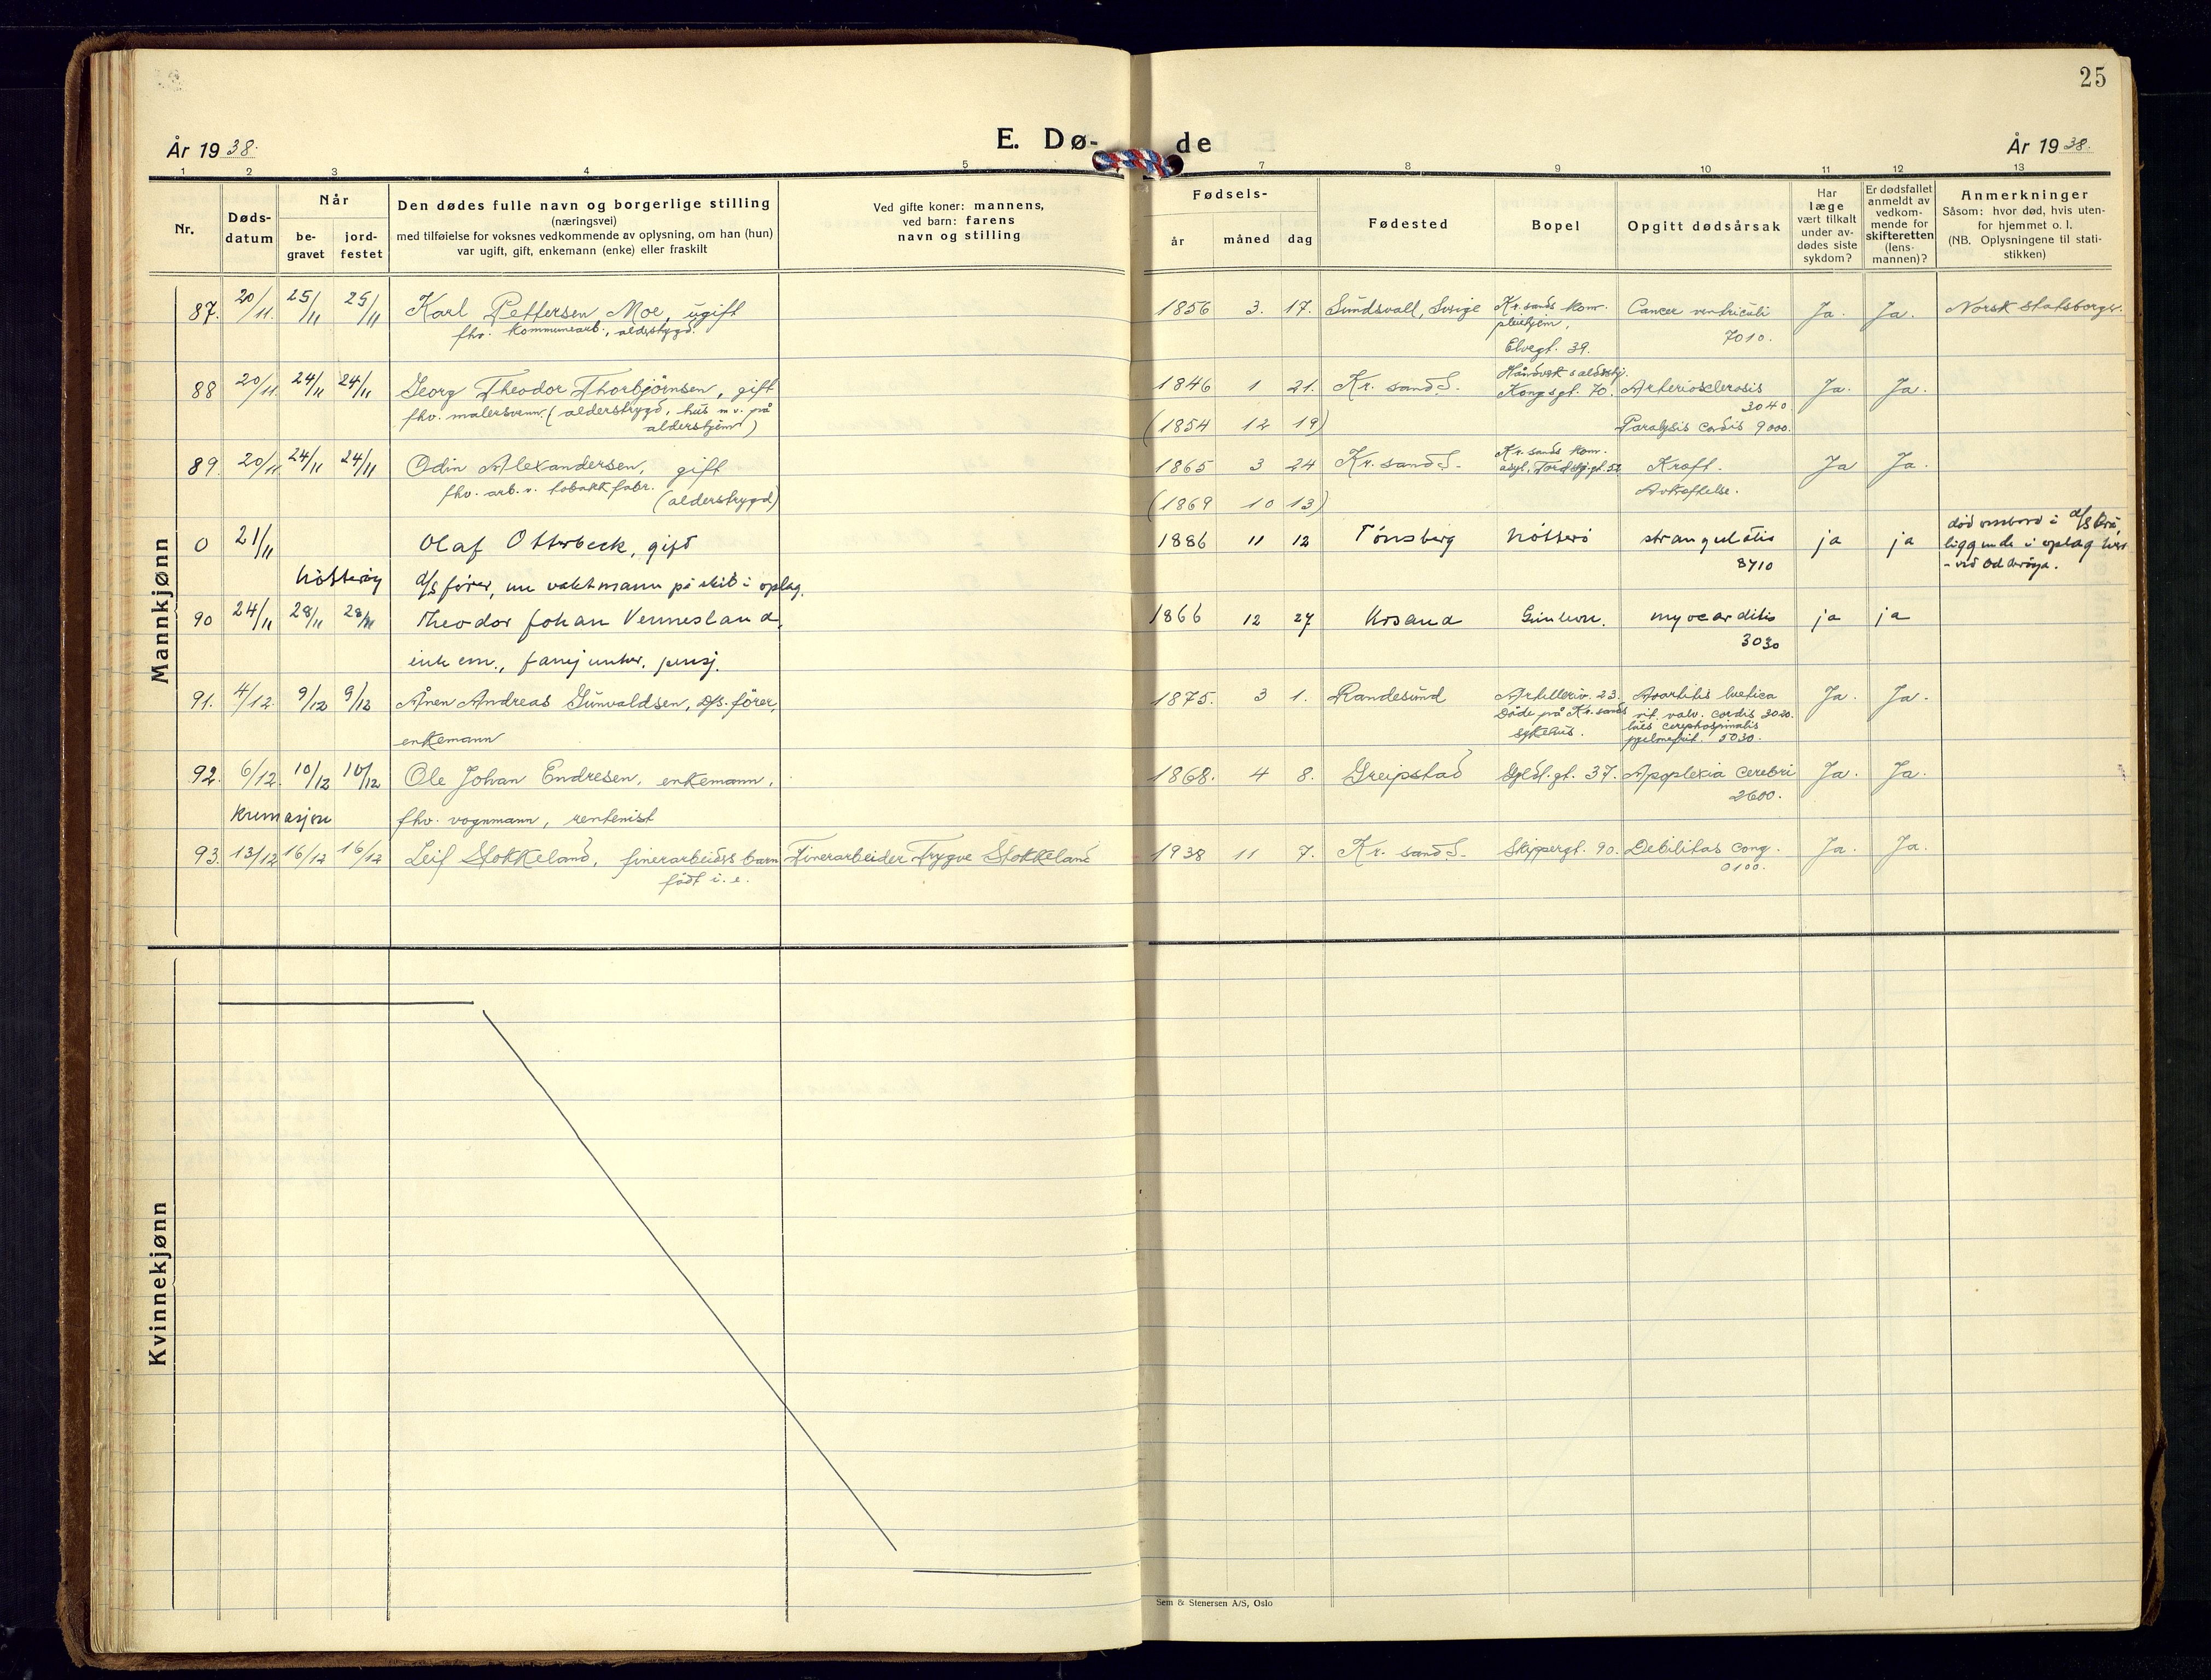 25
År 1938.
E. Dø-
de
År 1938.
1 2 3 4 5 7 8 9 10 11 12 13
Nr.
Døds-
datum
Når
be-
gravet
jord-
festet
Den dødes fulle navn og borgerlige stilling
(næringsvei)
med tilføielse for voksnes vedkommende av oplysning, om han (hun)
var ugift, gift, enkemann (enke) eller fraskilt
Ved gifte koner: mannens,
ved barn: farens
navn og stilling
Fødsels-
år måned dag
Fødested
Bopel
Opgitt dødsårsak
Har
læge
vært tilkalt
under av-
dødes siste
sykdom?
Er dødsfallet
anmeldt av
vedkom-
mende for
skifteretten
(lens-
mannen)?
Anmerkninger
Såsom: hvor død, hvis uten-
for hjemmet o. l.
(NB. Oplysningene til stati-
stikken)
Mannkjønn
87. 20/11. 25/11 25/11 Karl Pettersen Moe, ugift 1856 3. 17. Sundsvall, Sverige Kr.sands kom. Cancer ventriculi Ja. Ja. Norsk statsborger.
fhv. kommunearb., alderstrygd. pleiehjem, 7010.
Elvegt. 39.
88 20/11. 24/11 24/11 Georg Theodor Thorbjörnsen, gift 1846 1 21. Kr. sand S. Kongsgt. 70. Arteriosclerosis Ja. Ja.
fhv. malersvenn. (alderstrygd, hus m.v. på 3040.
aldershjem) (1854 12 19) Paralysis cordis 9000.
89. 20/11 24/11 24/11 Odin Alexandersen, gift 1865 3 24 Kr. sand S. Kr. sands kom. Ja Ja.
fhv. arb. v. tobakkfabr. asyl,
(alderstrygd) (1869 10 13) Avkreftelse.
0 21/11 Olaf Otterbeck, gift 1886 11 12 Tönsberg Nötterö strangulatio ja ja død ombord i d/s
Nötteröy d/s fører, nu vaktmann på skib i oplag. 8710 liggende i oplag her
- ved Odderöya.
90 24/11 28/11 28/11 Theodor Johan Vennesland, 1866 12 27 Krsand myocarditis ja ja
enkem., fanejunker, pensj. 3030
91. 4/12. 9/12 9/12 Ånen Andreas Gunvaldsen, d/s. förer, 1875. 3 1. Randesund Artilleriv. 23. Aortitis luetica Ja. Ja.
enkemann Döde på Kr. sands vit. valv. cordis 3020.
sykehus. 5030.
92. 6/12. 10/12 10/12 Ole Johan Endresen, enkemann, 1868. 4 8. Greipstad Gyldl.gt. 37. Apoplexia cerebri Ja. Ja.
Kremasjon fhv. vognmann, rentenist 2600.
93. 13/12 16/12 16/12 Leif Stokkeland, finerarbeiders barn Finerarbeider Trygve Stokkeland 1938 11 7. Kr. sand S. Skippergt. 90. Debilitas cong. Ja. Ja.
født i. e. 0100.
Kvinnekjønn
Sem & Stenersen A/S, Oslo